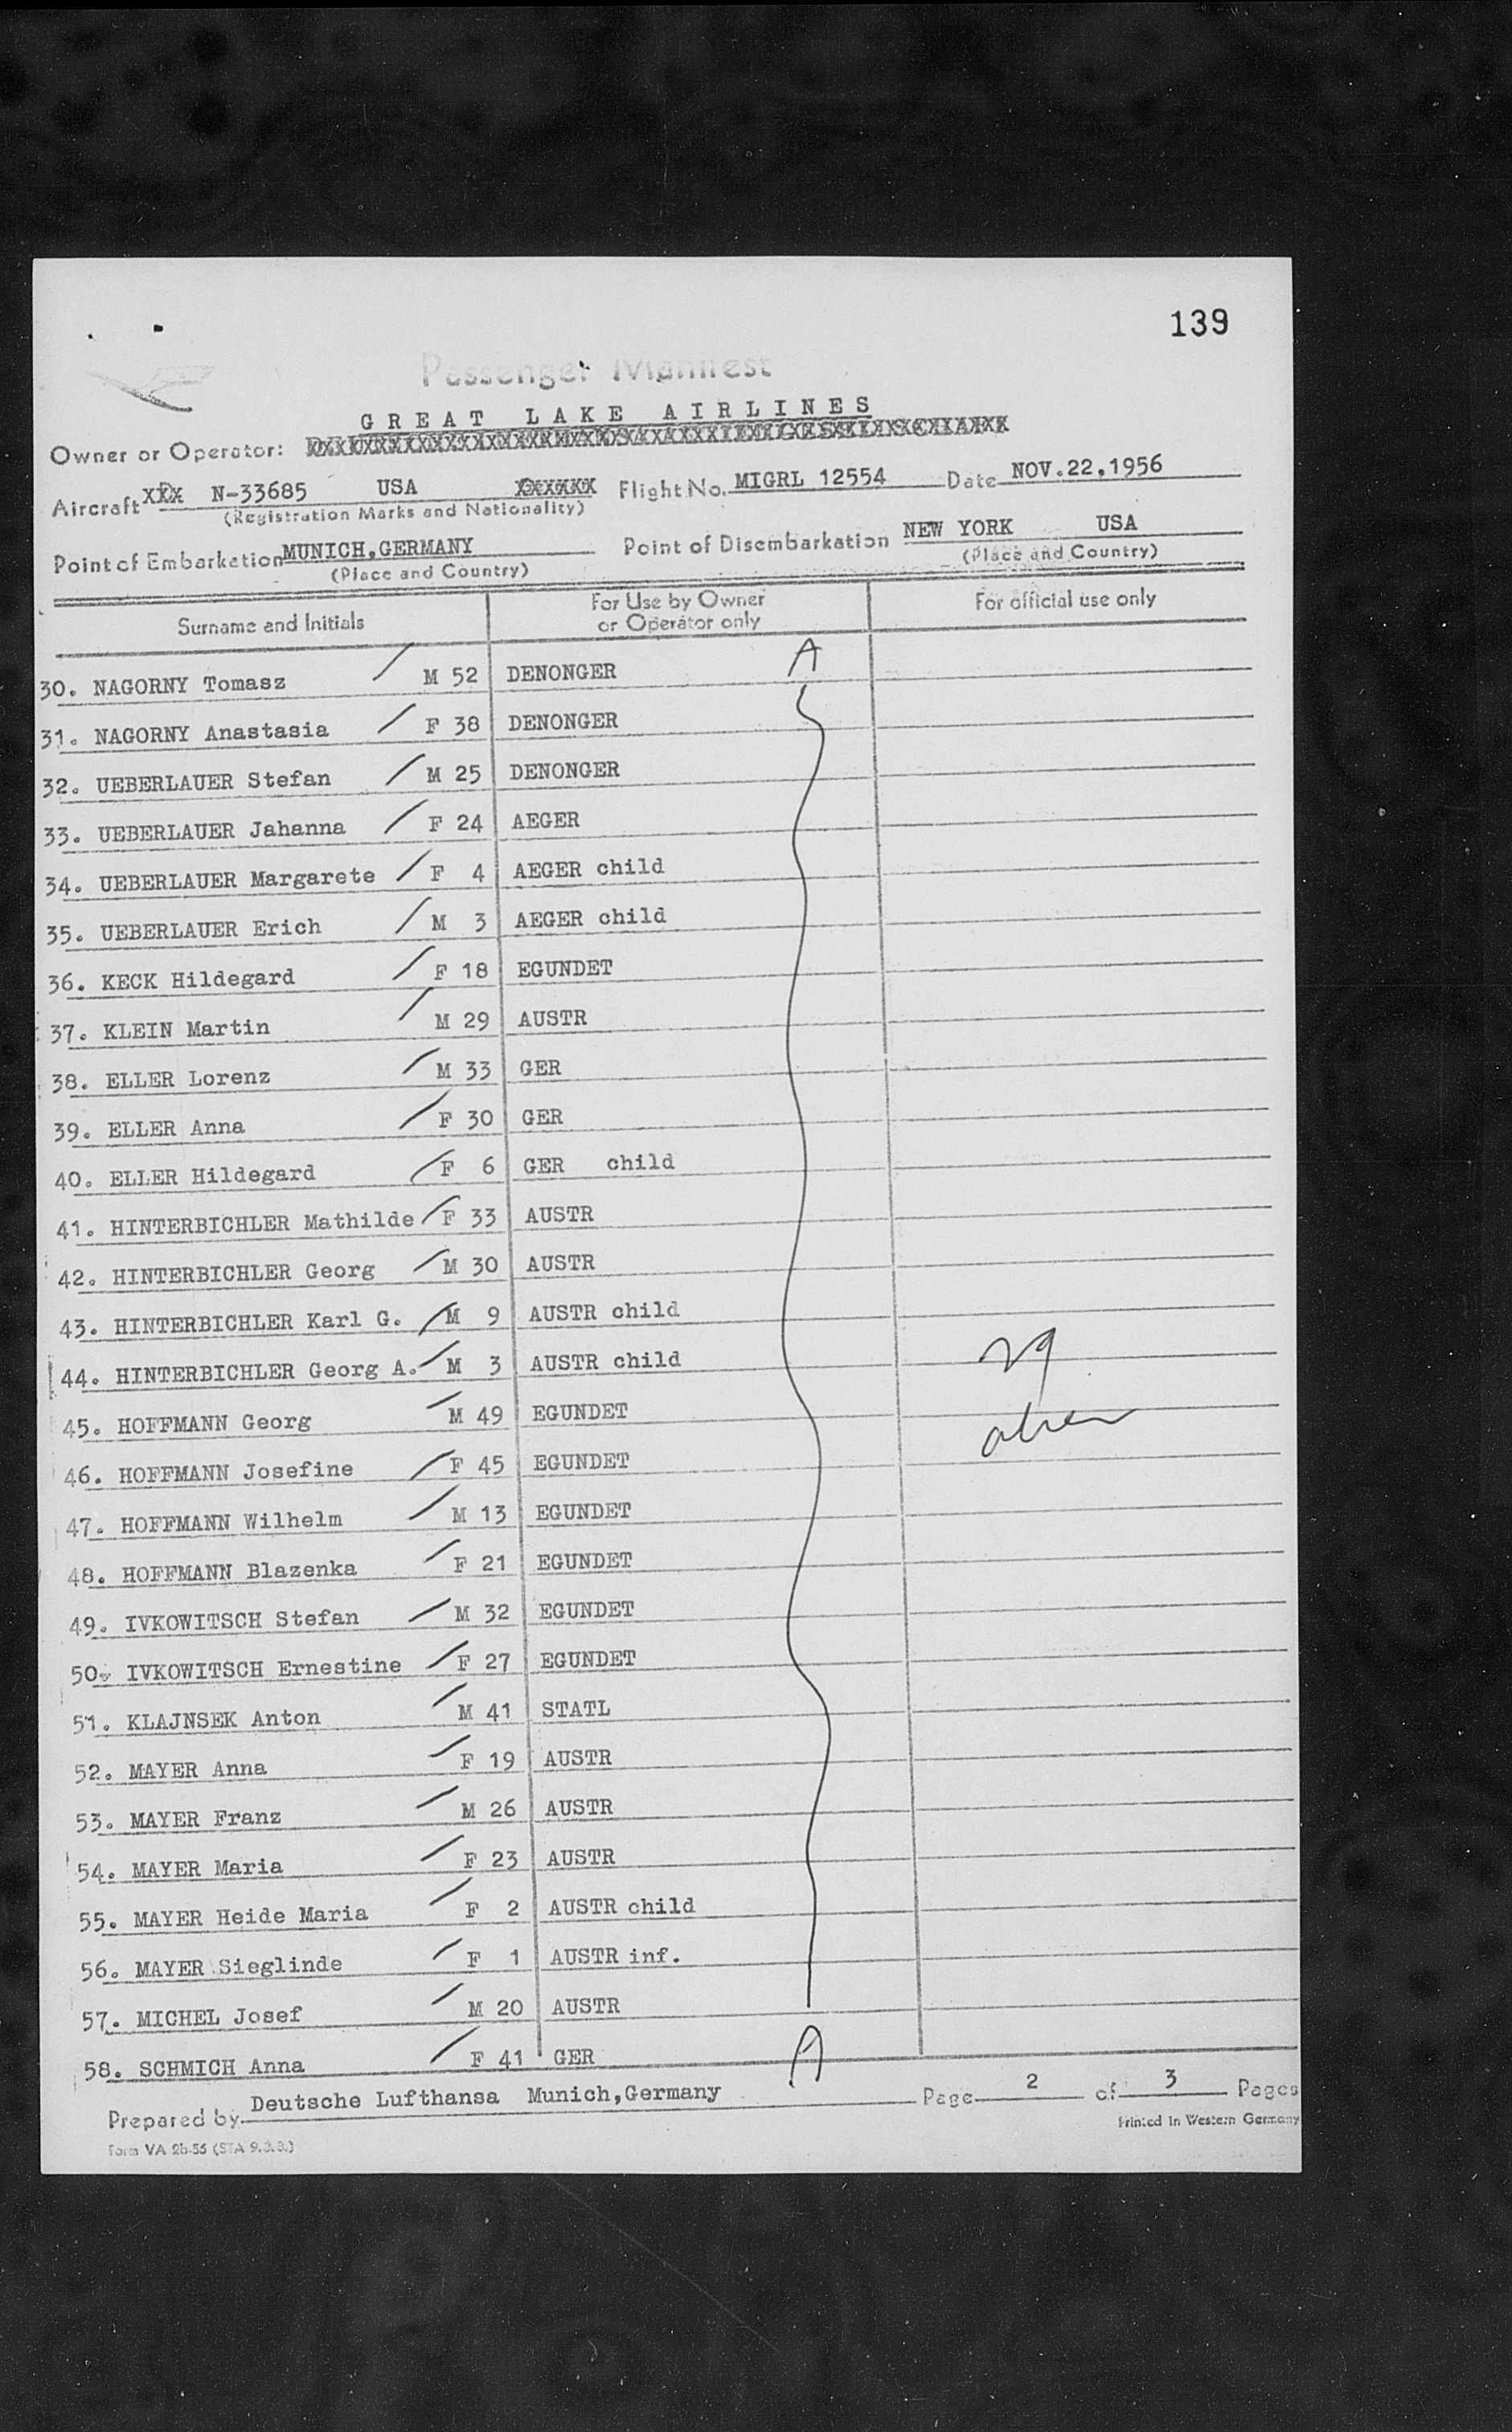 139
Passenger Manifest
GREAT LAKE AIRLINES
Owner or Operator:
Aircraft XXX N-33685 USA Flight No. MIGRL 12554 Date NOV.22,1956
(Registration Marks and Nationality)
Point of Embarkation MUNICH,GERMANY Point of Disembarkation NEW YORK USA
(Place and Country) (Place and Country)
Surname and Initials For Use by Owner or Operator only For official use only
30. NAGORNY Tomasz / M 52 DENONGER A
31. NAGORNY Anastasia / F 38 DENONGER
32. UEBERLAUER Stefan / M 25 DENONGER
33. UEBERLAUER Jahanna / F 24 AEGER
34. UEBERLAUER Margarete / F 4 AEGER child
35. UEBERLAUER Erich / M 3 AEGER child
36. KECK Hildegard / F 18 EGUNDET
37. KLEIN Martin / M 29 AUSTR
38. ELLER Lorenz / M 33 GER
39. ELLER Anna / F 30 GER
40. ELLER Hildegard / F 6 GER child
41. HINTERBICHLER Mathilde / F 33 AUSTR
42. HINTERBICHLER Georg / M 30 AUSTR
43. HINTERBICHLER Karl G. / M 9 AUSTR child
44. HINTERBICHLER Georg A. / M 3 AUSTR child 29
45. HOFFMANN Georg / M 49 EGUNDET
46. HOFFMANN Josefine / F 45 EGUNDET
47. HOFFMANN Wilhelm / M 13 EGUNDET
48. HOFFMANN Blazenka / F 21 EGUNDET
49. IVKOWITSCH Stefan / M 32 EGUNDET
50. IVKOWITSCH Ernestine / F 27 EGUNDET
51. KLAJNSEK Anton / M 41 STATL
52. MAYER Anna / F 19 AUSTR
53. MAYER Franz / M 26 AUSTR
54. MAYER Maria / F 23 AUSTR
55. MAYER Heide Maria / F 2 AUSTR child
56. MAYER Sieglinde / F 1 AUSTR inf.
57. MICHEL Josef / M 20 AUSTR
58. SCHMICH Anna / F 41 GER A
Prepared by Deutsche Lufthansa Munich,Germany Page 2 of 3 Pages
Printed in Western Germany
Form VA 2b-55 (STA 9.3.3.)